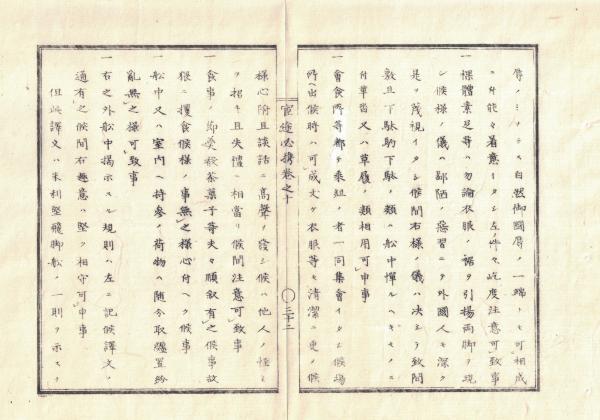 辱ノミナラス自然御國辱ノ一端トモ可相成
ニ付能々着意イタシ左ノ件々屹度注意可致事
一 裸體素足等ハ勿論衣服ノ裾ヲ引揚両脚ヲ現
シ候様ノ儀ハ鄙陋ノ惡習ニテ外國人モ深ク
是ヲ蔑視イタシ候間右様ノ儀ハ決シテ致間
敷且下駄駒下駄ノ類ハ船中憚ルヘキモノニ
付革沓又ハ草履ノ類相用可申事
一 會食所等都テ乗組ノ者一同集會イタシ候場
所ヘ出候時ハ可成丈ケ衣服等モ清潔ニ更メ候
宦途必携巻之十
〇二十二
様心附且談話ニ高聲ヲ發シ候ハ他人ノ怪ミ
ヲ招キ且失禮ニ相當リ候間注意可致事
一 食事ノ節羹殽茶菓子等夫々順叙有之候事故
猥ニ攫食候様ノ事無之様心付ヘク候事
一 船中又ハ室内ヘ持參ノ荷物ハ随分取纏置紛
亂無之様可致事
一 右之外船中揭示スル規則ハ左ニ記候譯文ノ
通有之候間右趣意ハ堅ク相守可申事
但此譯文ハ米利堅飛脚船ノ一則ヲ示スノ